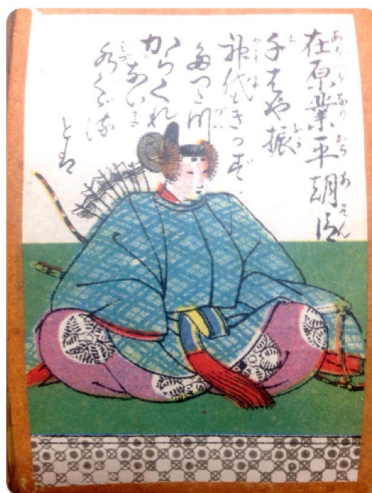 在原業平朝臣
千はや振
神代もきかず
たつた川
からくれ
なゐに
水くゞる
とは